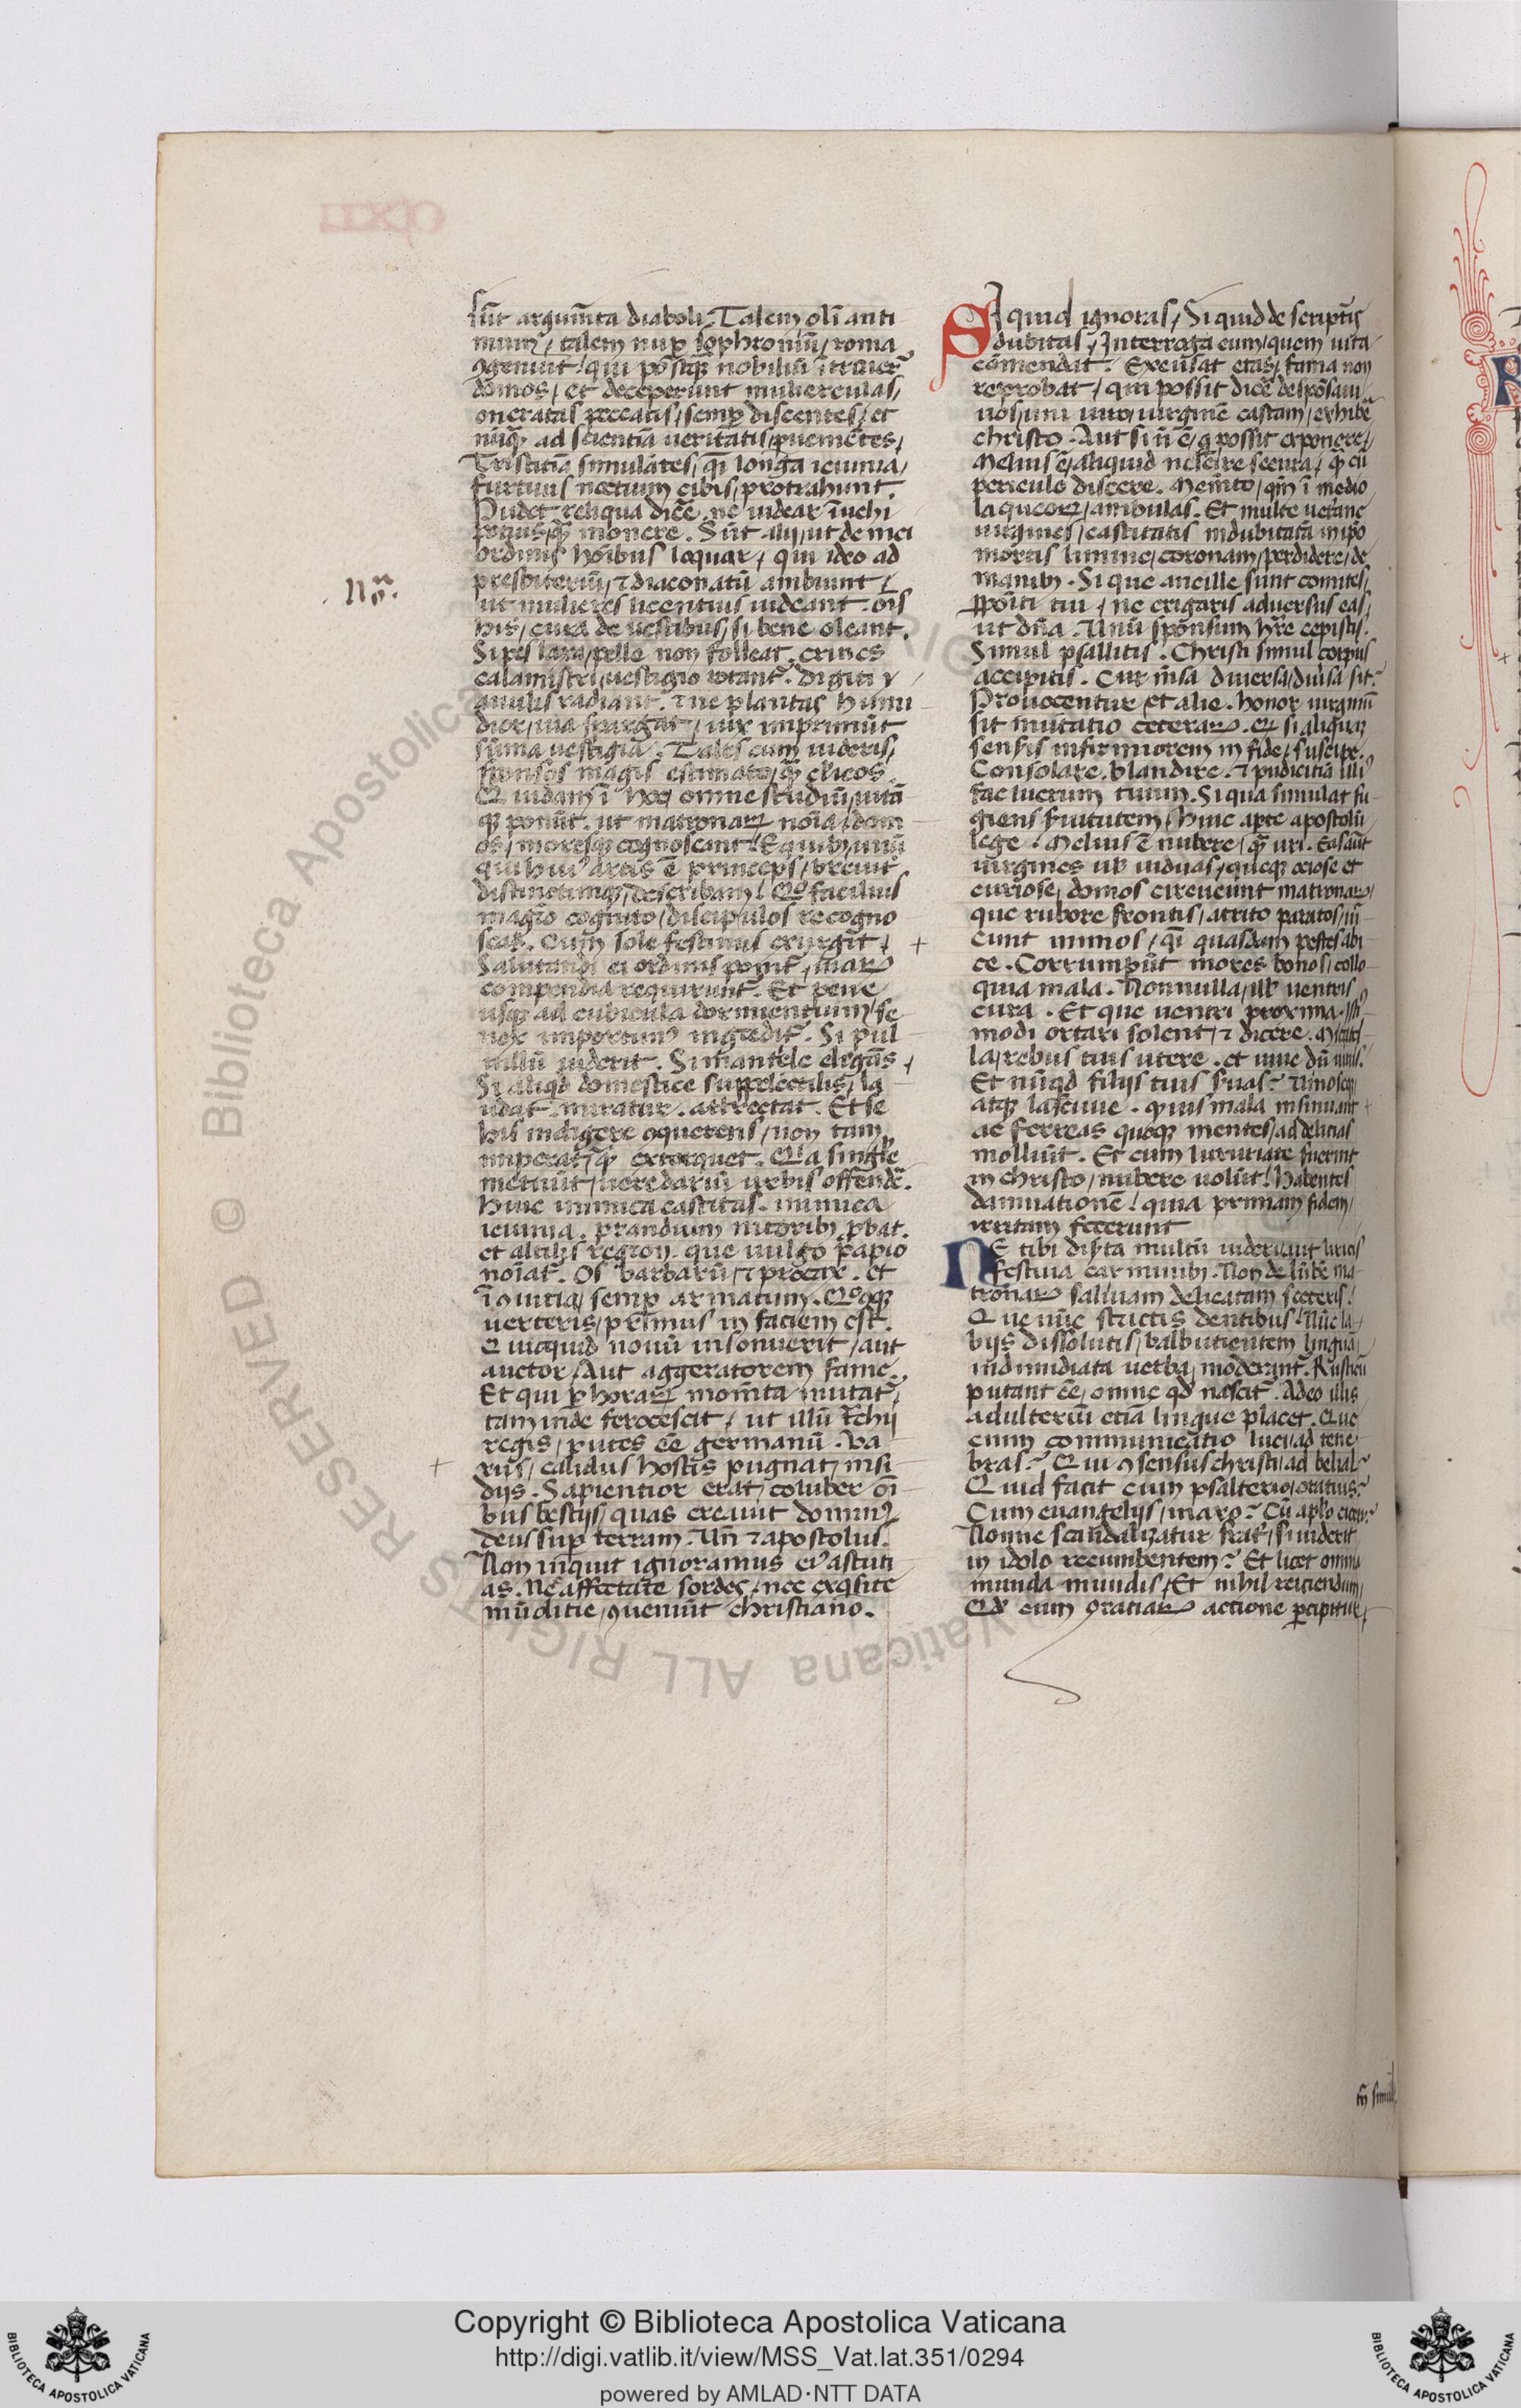 sūt argum̄ta diaboli. Talem oli̅ anti
mum̄, talem nup̱ sophroniū, roma
ꝯgemuit! qui po̅stqꝫ nobiliū it̅rauer̅
domos, et deceperunt mulierculas,
oneratas peccatis, semp̱ discentes, et
nūqꝫ ad scientiā ueritatis, puenie̅tes,
Tristitiā simulātes, q̅i longa ieiunia,
furtiuis noctium cibis, protrahunt.
Pudet reliqua dice̅. ne uidear īuehi
potius, qꝫ monere. Sūt alij, ut de mei
ordinis ho̅ibus loquar, qui ideo ad
presbiteriū, ⁊ diaconatū ambiunt,
ut mulieres licentius uideant. o̅is
his, cura de uestibus, si bene oleant.
Si pes laxa, pelle non folleat. crines
calamistri, uestigio rotant̅. digiti
anulis radiant. ⁊ ne plantas humi
dior, uia spargat, uix imprimūt
sūma uestigia. Tales cum uideris,
sponsos magis estimato, qꝫ cl̅icos
Quidam ī hoc, omne studiū, uitā
qꝫ ponūt. ut matronaꝝ no̅ia, dom
os, moresqꝫ cognoscant! E quibꝫ, unū
qui hui᷒ artis ē princeps, breuit̅
distinctimqꝫ, describam! Qͦ facilius
magr̅o cognito, discipulos recogno
scas. Cum sole festinus exurgit,
Salutandi ei ordinis ponit̅, uiaꝝ
compendia requirunt̅. Et pene
usqꝫ ad cubicula dormientium, se
nex importun᷒ ingredit̅. Si pul
uillū uiderit. Si mantele elegās,
Si aliqd domestice suppellectilis, la
udat. miratur. attrectat. Et se
his indigere ꝯquerens, non tam
imperat, qꝫ extorquet. Quia singl̅e
metuūt, ueredariū urbis offende̅.
Huic inimica castitas. inimica
ieiunia. prandium nitoribꝫ, ꝓbat.
et altilis region. que uulgo papio
no̅iat̅. Os barbarū, ⁊ procax. et
ī ꝯuitia, semp̱ armatum. Qͦcqꝫ
uerteris, primus in faciem est.
Quicquid nouū insonuerit, aut
auctor, Aut aggeratorem fame.
Et qui p̱ horaꝝ mom̄ta mutat̅,
tam inde ferocescit, ut illū
regis, putes ee̅ germanū. Va
rius, calidus hostis pugnat, insi
dijs. Sapientior erat, coluber o̅i
bus bestijs, quas creauit domin᷒
deus sup̱ terram. Un̄ ⁊ apostolus.
Non inquit ignoramus ei᷒ astuti
as. Nec affectate sordes, nec exqsite
mūditie, ꝯueniūt christiano.
Si quid ignoras, Si quid de scriptis
dubitas, Interroga eum, quem uita
co̅mendat. Excusat etas, fama non
reprobat, qui possit dice̅ despo̅saui
uos, uni uiro, uirgine̅ castam, exhibe̅
christo. Aut si n̄ ē, q possit exponere,
Melius ē, aliquid nescire secura, qꝫ cū
periculo discere. Mem̄to, qm̄ ī medio
laqueoꝝ, ambulas. Et multe uetane
uirgines, castitatis indubitatā in ipo̅
mortis limine, coronam, perdidere, de
manibꝫ. Si que ancille sunt comites,
ꝓpo̅iti tui, ne erigaris aduersus eas,
ut dn̄a. Unū sponsum hr̄e cepistis.
Simul psallitis. Christi simul corpus
accipitis. Cur me̅sa diuersa, diuisa sit?
Prouocentur, et alie. honor uirginū
sit inuitatio ceteraꝝ. Qꝫ si aliquaꝫ
sensis infirmiorem in fide, suscipe.
Consolare. blandire. ⁊ pudicitiā illi᷒
fac lucrum tuum. Si qua simulat fu
giens s̅uitutem, Huic aperte apostolū
lege! Melius ē nubere, qꝫ uri. Eas aūt
uirgines ul̅ uiduas, queqꝫ ociose et
curiose, domos circueunt matronaꝝ,
que rubore frontis, attrito parasitos, ui
cunt mimos, q̅i quasdam pestes abi
ce. Corrumpūt mores bonos, collo
quia mala. Nonnulla, illꝫ uentris
cura. Et que uentri proxima. isti᷒
modi ortari solent, ⁊ dicere. Mi catel
la, rebus tuis utere. et uiue dū uiuis.
Et nūqd filijs tuis s̅uas? Uinose,
atqꝫ lasciue. quis mala insinuant
ac ferreas quoqꝫ mentes, ad delitias
molliūt. Et cum luxuriate fuerint
in christo, nubere uolūt! Habentes
damnatione̅! quia primam fidem,
irritam fecerunt
NE tibi dis̅ta multū uideri, aut liricis
festiua carminibꝫ. Non delūbe̅ ma
tronaꝝ saliuam delicatam secteris!
Que nūc strictis dentibus! nūc la
bijs dissolutis, balbutientem linguā,
in dimidiata uerba, moderant̅. Rusticū
putant ee̅, omne qd nascit̅. Adeo illis
adulteriū etiā lingue placet. Que
enim communicatio luci, ad tene
bras? Qui ꝯsensus christi, ad belial?
Quid facit cum psalterio, oratius?
Cum euangelijs, maro? Cū apl̅o cicero?
Nonne scandalizatur frat̅, si uiderit
in idolo recumbentem? Et licet omnia
munda mundis, Et nihil reiciendum,
Qd cum gratiaꝝ actione p̱cipitur,